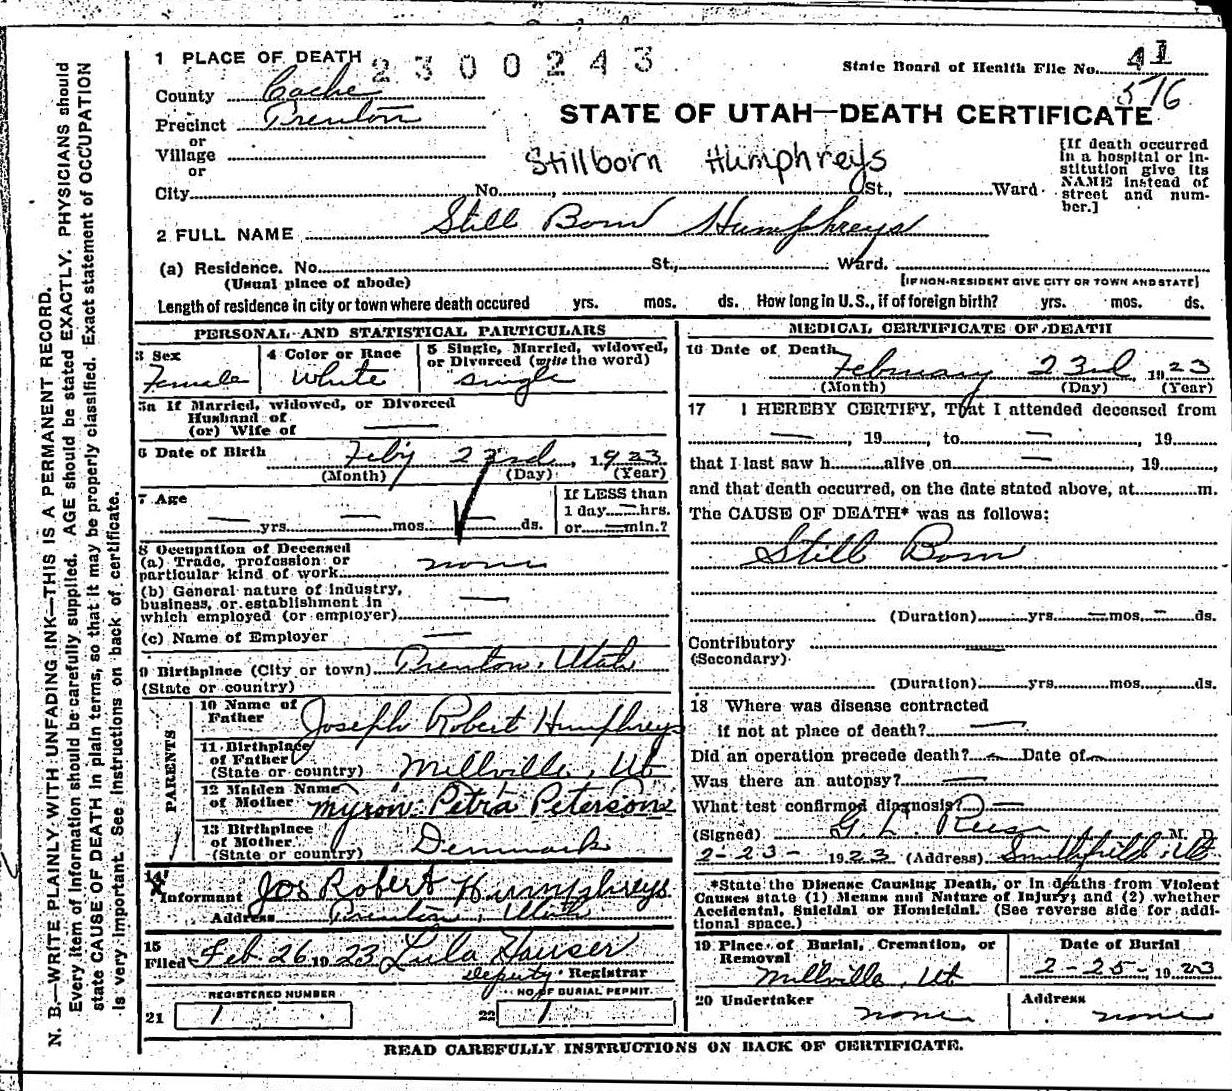 1 PLACE OF DEATH 2300243
State Board of Health File No. 41
County Cache
576
Precinct Trenton
STATE OF UTAH—DEATH CERTIFICATE
or
Village
or
Stillborn Humphreys
[If death occurred in a hospital or institution give its NAME instead of street and number.]
City No. , St., Ward
2 FULL NAME Still Born Humphreys
(a) Residence. No. St., Ward.
(Usual place of abode) [IF NON-RESIDENT GIVE CITY OR TOWN AND STATE]
Length of residence in city or town where death occured yrs. mos. ds. How long in U.S., if of foreign birth? yrs. mos. ds.
PERSONAL AND STATISTICAL PARTICULARS
3 Sex
Female
4 Color or Race
White
5 Single, Married, widowed, or Divorced (write the word)
single
5a If Married, widowed, or Divorced
Husband of
(or) Wife of —
6 Date of Birth Feby 23rd, 1923
(Month) (Day) (Year)
7 Age
— yrs. — mos. — ds.
If LESS than
1 day — hrs.
or — min.?
8 Occupation of Deceased
(a) Trade, profession or
particular kind of work none
(b) General nature of industry,
business, or establishment in
which employed (or employer) —
(c) Name of Employer —
9 Birthplace (City or town) Trenton, Utah
(State or country)
PARENTS
10 Name of
Father Joseph Robert Humphreys
11 Birthplace
of Father
(State or country) Millville, Ut
12 Maiden Name
of Mother Myron Petria Peterson
13 Birthplace
of Mother
(State or country) Denmark
14
X Informant Jos Robert Humphreys
Address Trenton, Utah
15
Filed Feb 26 1923 Lula Hauser
deputy Registrar
REGISTERED NUMBER
21 1
NO. OF BURIAL PERMIT.
22 1
MEDICAL CERTIFICATE OF DEATH
16 Date of Death February 23rd, 1923
(Month) (Day) (Year)
17 I HEREBY CERTIFY, That I attended deceased from
—, 19 , to —, 19
that I last saw h alive on —, 19 ,
and that death occurred, on the date stated above, at m.
The CAUSE OF DEATH* was as follows:
Still Born
(Duration) yrs. — mos. — ds.
Contributory —
(Secondary)
(Duration) yrs. mos. ds.
18 Where was disease contracted
if not at place of death? —
Did an operation precede death? — Date of —
Was there an autopsy? —
What test confirmed diagnosis? —
(Signed) G. L. Rees M. D.
2-23-1923 (Address) Smithfield, Ut
*State the Disease Causing Death, or in deaths from Violent
Causes state (1) Means and Nature of Injury; and (2) whether
Accidental, Suicidal or Homicidal. (See reverse side for addi-
tional space.)
19 Place of Burial, Cremation, or
Removal
Millville, Ut
Date of Burial
2-25-1923
20 Undertaker
none
Address
none
READ CAREFULLY INSTRUCTIONS ON BACK OF CERTIFICATE.
N. B.—WRITE PLAINLY WITH UNFADING INK—THIS IS A PERMANENT RECORD.
Every item of information should be carefully supplied. AGE should be stated EXACTLY. PHYSICIANS should
state CAUSE OF DEATH in plain terms, so that it may be properly classified. Exact statement of OCCUPATION
is very important. See instructions on back of certificate.